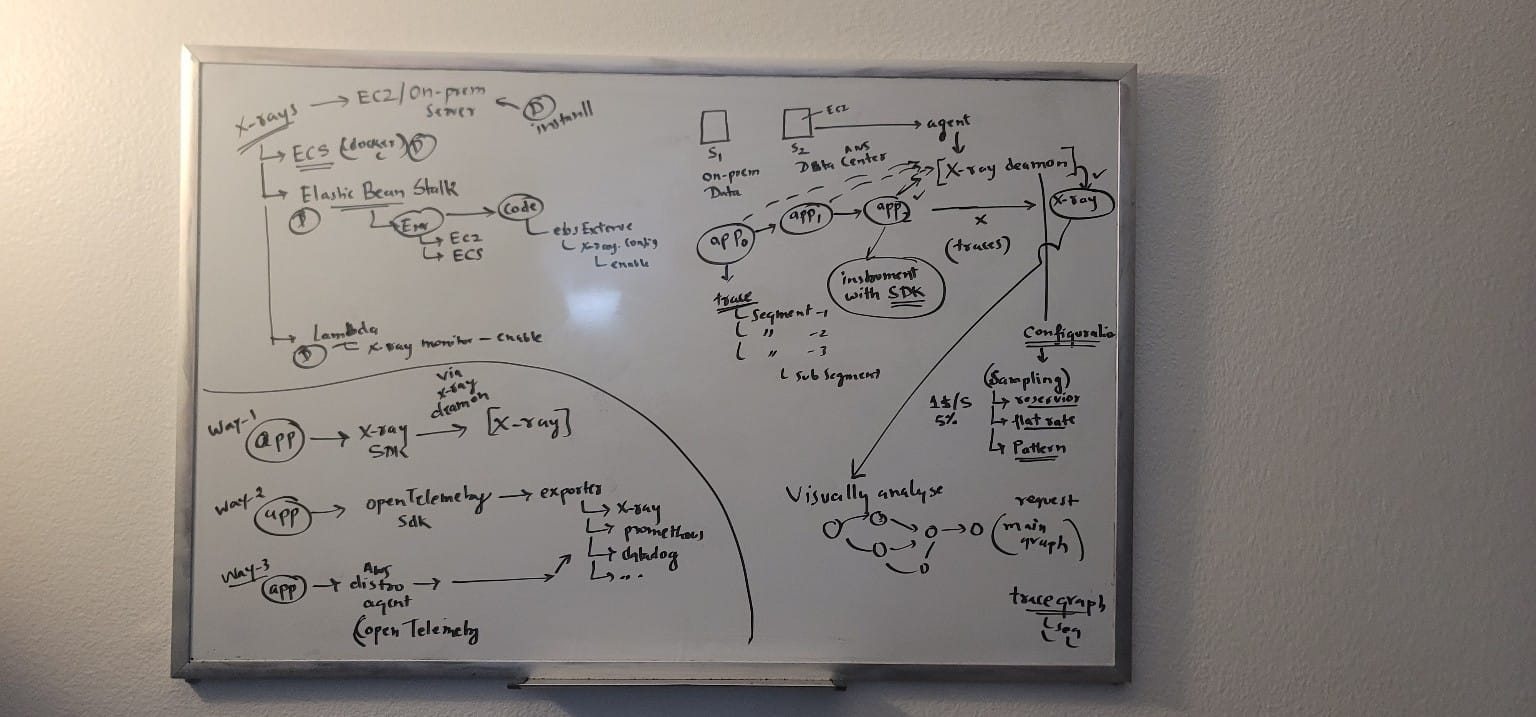 X-rays → EC2/On-prem
Server ← D
install
ECS (docker) D
Elastic Bean Stalk
D
Env → Code
EC2
ECS
ebs Extenve
X-ray. Config
enable
Lambda
D X-ray monitor - enable
Way-1
app → X-ray
SDK
via
x-ray
deamon
→ [X-ray]
Way-2
app → openTelemetry → exporter
Sdk
X-ray
prometheus
datadog
...
Way-3
app → AWS
distro →
agent
(open Telemetry
S1
On-prem
Data
S2
EC2
AWS
Data Center
→ agent
[X-ray deamon]
X-ray
app0 → app1 → app2
x
(traces)
instroment
with SDK
trace
Segment -1
" -2
" -3
Sub Segment
Configuratio
(Sampling)
1t/s
5%
reservior
flat rate
Pattern
Visually analyse
request
(main
graph)
trace graph
seg